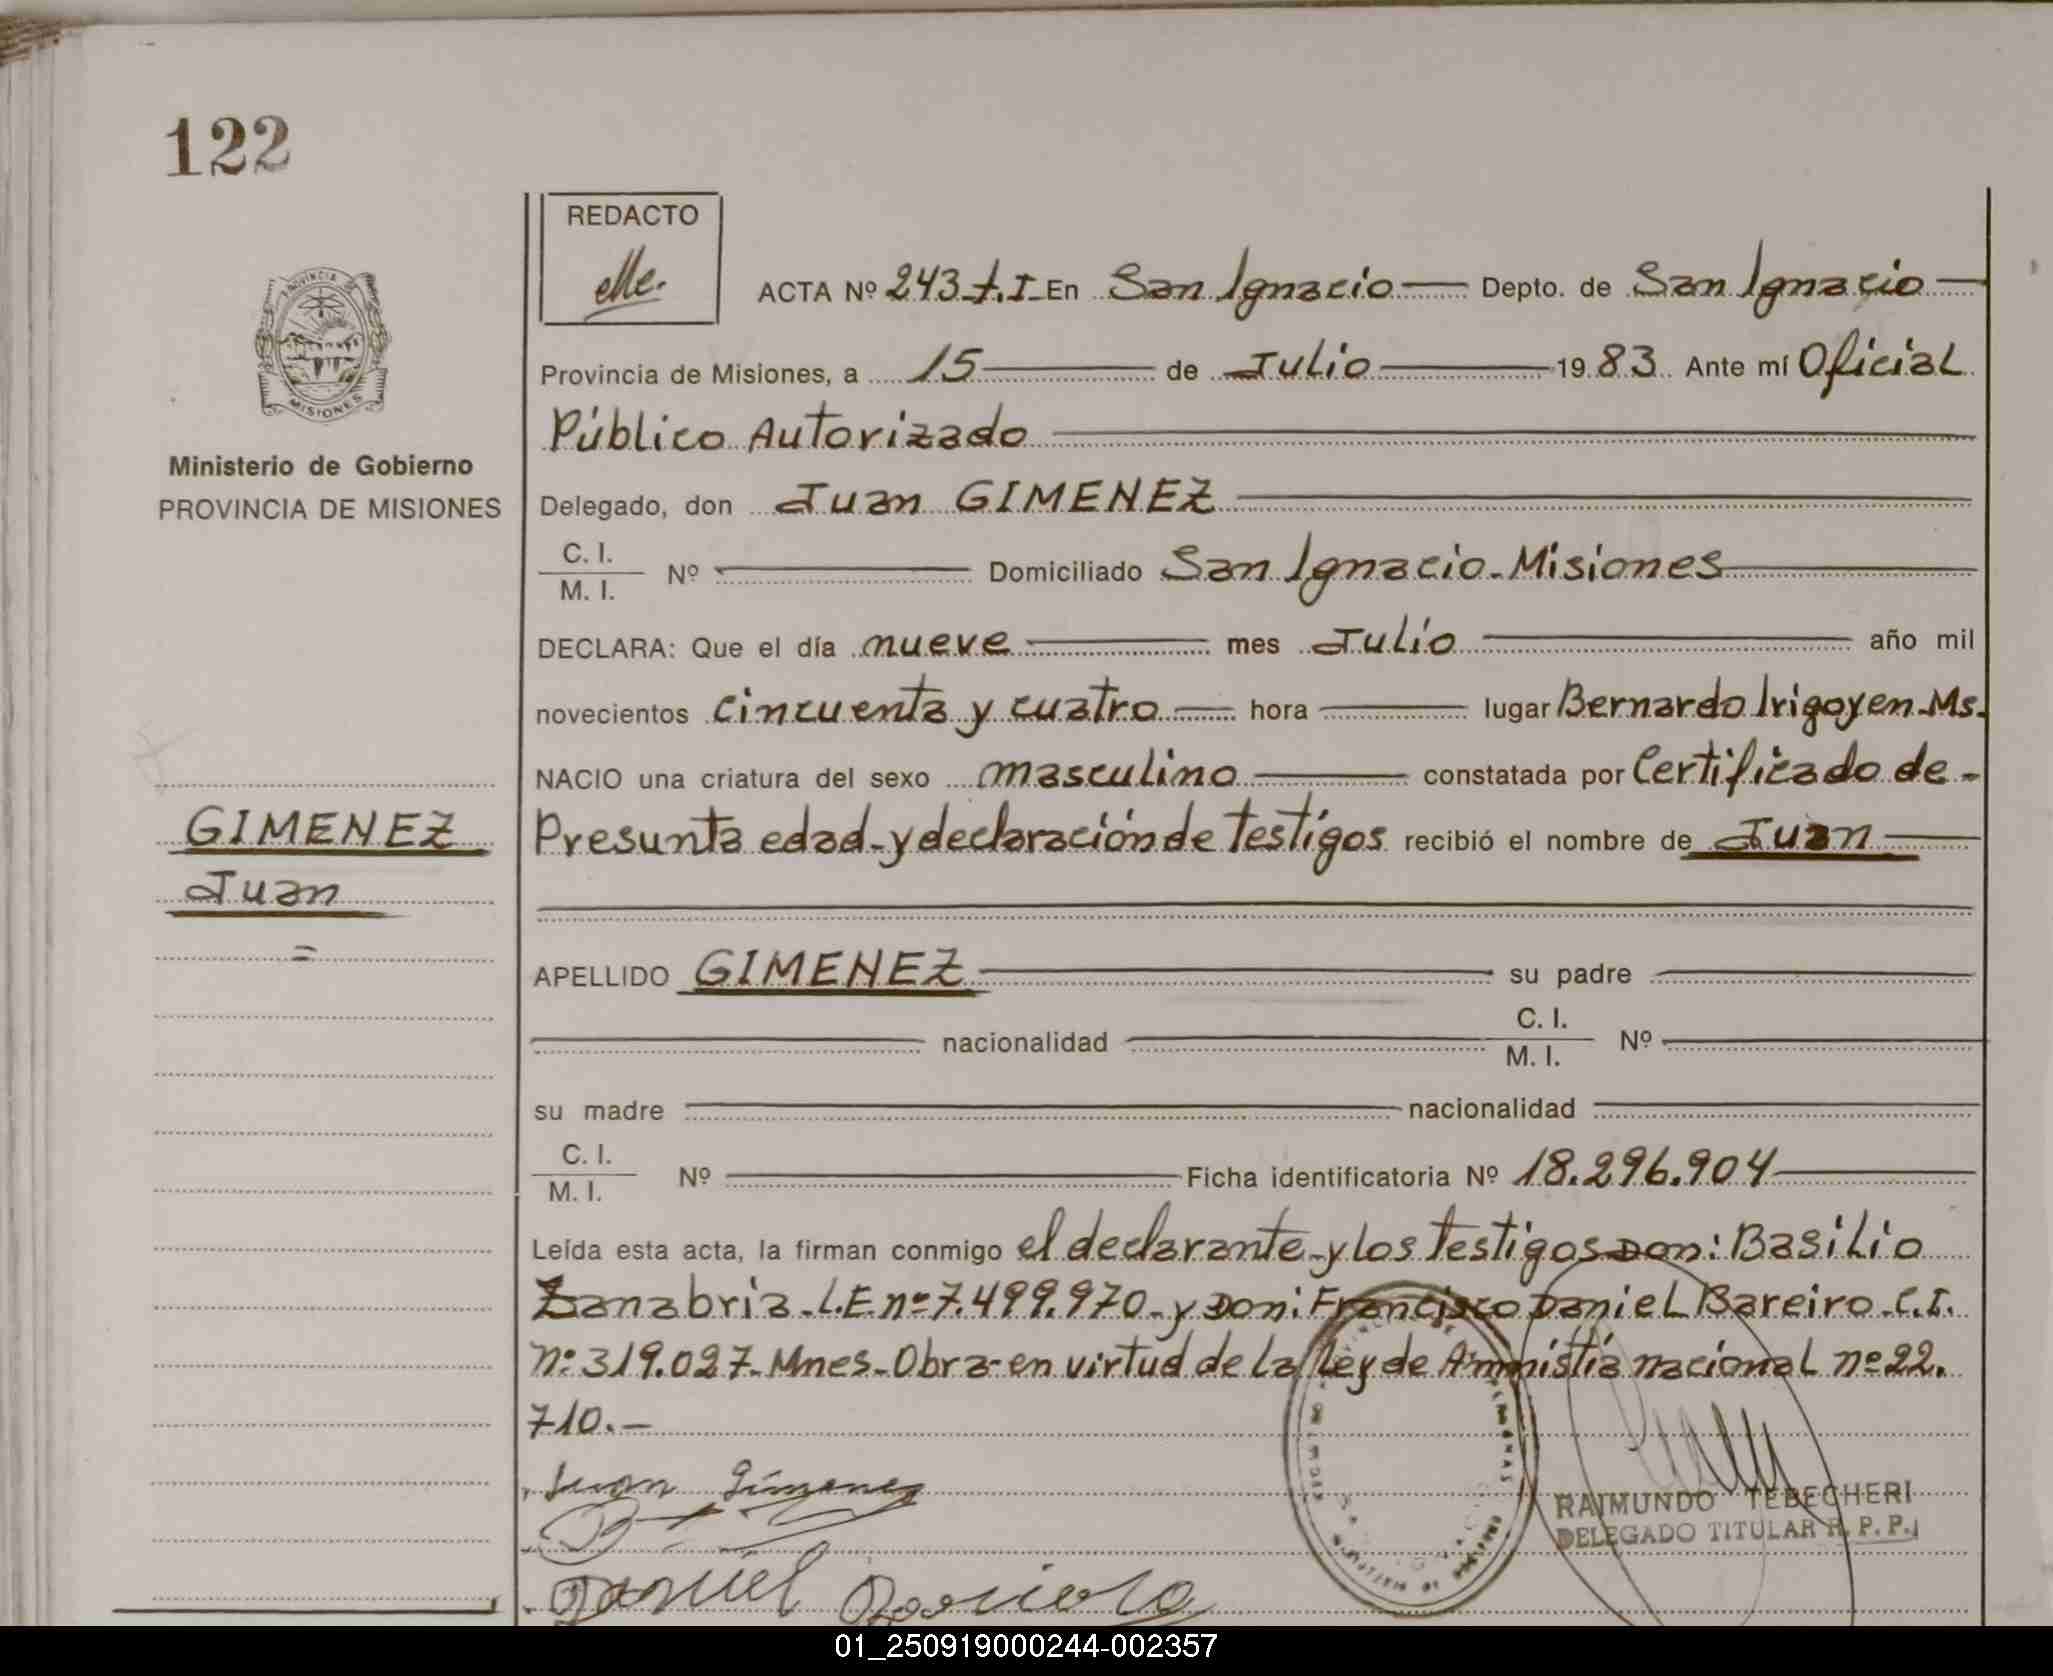 122
REDACTO
PROVINCIA
MISIONES
Ministerio de Gobierno
PROVINCIA DE MISIONES
ACTA Nº 243 t.I En San Ignacio Depto. de San Ignacio
Provincia de Misiones, a 15 de Julio 1983. Ante mí Oficial
Público Autorizado
Delegado, don Juan GIMENEZ
C. I.
M. I. Nº Domiciliado San Ignacio-Misiones
DECLARA: Que el día nueve mes Julio año mil
novecientos cincuenta y cuatro hora lugar Bernardo Irigoyen-Ms.
NACIO una criatura del sexo masculino constatada por Certificado de-
GIMENEZ
Presunta edad-y declaración de testigos recibió el nombre de Juan
Juan
=
APELLIDO GIMENEZ su padre
nacionalidad C. I.
M. I. Nº
su madre nacionalidad
C. I.
M. I. Nº Ficha identificatoria Nº 18.296.904
Leída esta acta, la firman conmigo el declarante-y los testigos Don: Basilio
Zanabria-L.E.nº7.499.970-y Don: Francisco Daniel Bareiro-C.I.
nº319.027-Mnes-Obra-en virtud de la Ley de Amnistia nacional nº22.
710.-
Juan Gimenez
Daniel
RAIMUNDO TEBECHERI
DELEGADO TITULAR R. P. P.
01_250919000244-002357